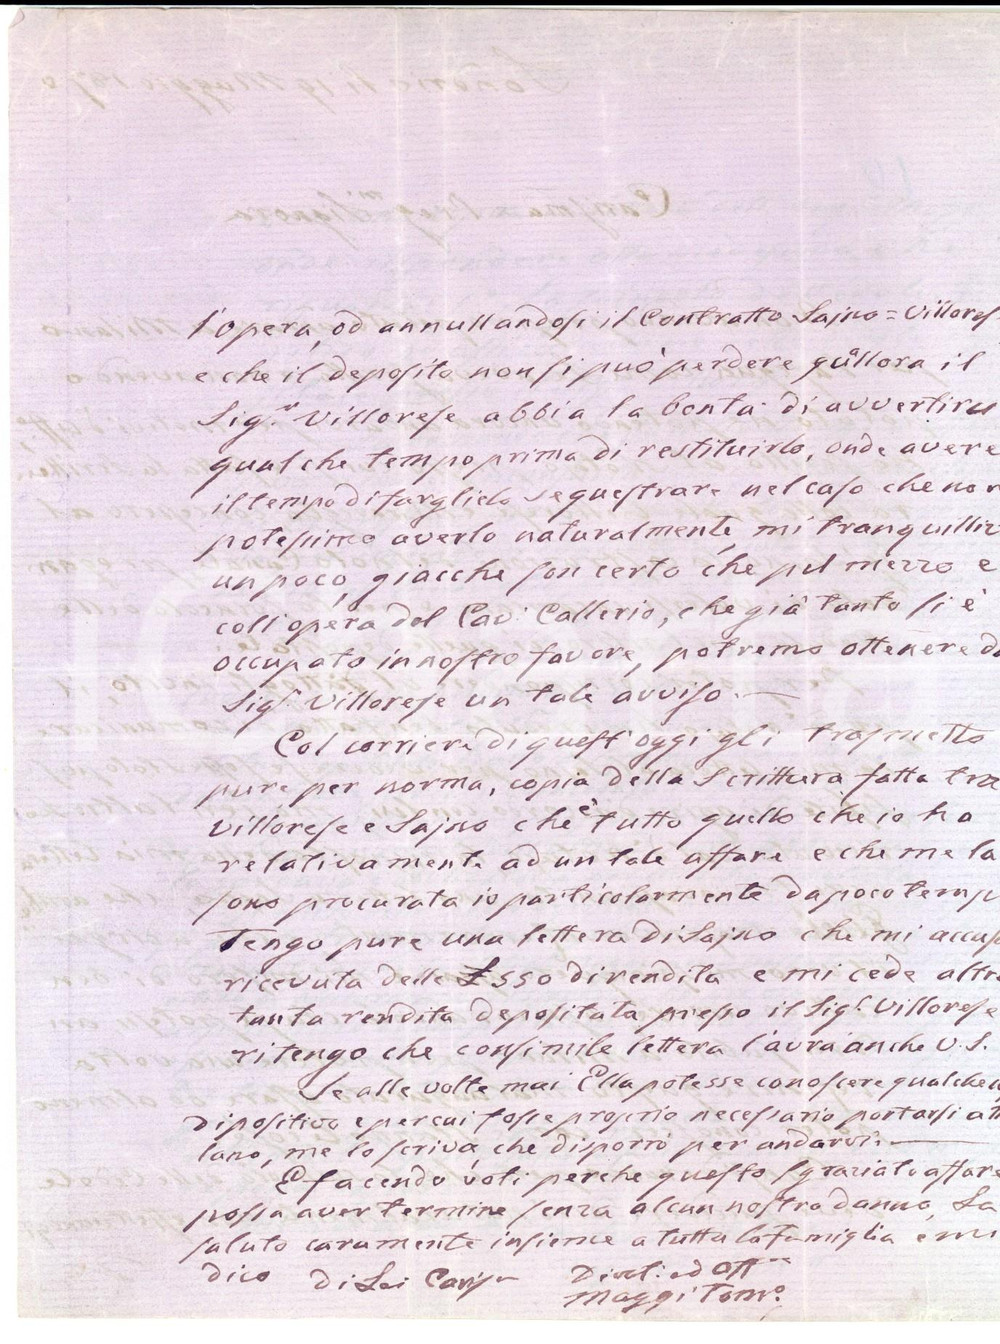 l'opera, od annullandosi il Contratto Sajno = Villores
e che il deposito non si può perdere quallora il
Sigr. Villorese abbia la bontà di avvertirci
qualche tempo prima di restituirlo, onde avere
il tempo di farglielo sequestrare nel caso che non
potessimo averlo naturalmente, mi tranquilliz
un poco, giacche son certo che pel mezzo e
coll'opera del Cav. Callerio, che già tanto si è
occupato in nostro favore, potremo ottenere da
Sigr. Villorese un tale avviso. —
Col corriere di quest'oggi gli trasmetto
pure per norma, copia della Scrittura fatta tra
Villorese e Sajno che è tutto quello che io ho
relativamente ad un tale affare e che me la
sono procurata io particolarmente da poco temp
Tengo pure una lettera di Sajno che mi accusa
ricevuta delle £ 550 di rendita e mi cede altre
tanta rendita depositata presso il Sigr. Villorese
ritengo che consimile lettera l'avrà anche V. S.
Se alle volte mai Ella potesse conoscere qualche
Dipositivo e per cui fosse proprio necessario portarsi a Mi
lano, me lo scriva, che disporrò per andarvi. —
E facendo voti perche questo sgraziato affare
possa aver termine senza alcun nostro danno, La
saluto caramente insieme a tutta la Famiglia e mi
dico di Lei Cariss
Divot. ed Off
Maggi Tom.o